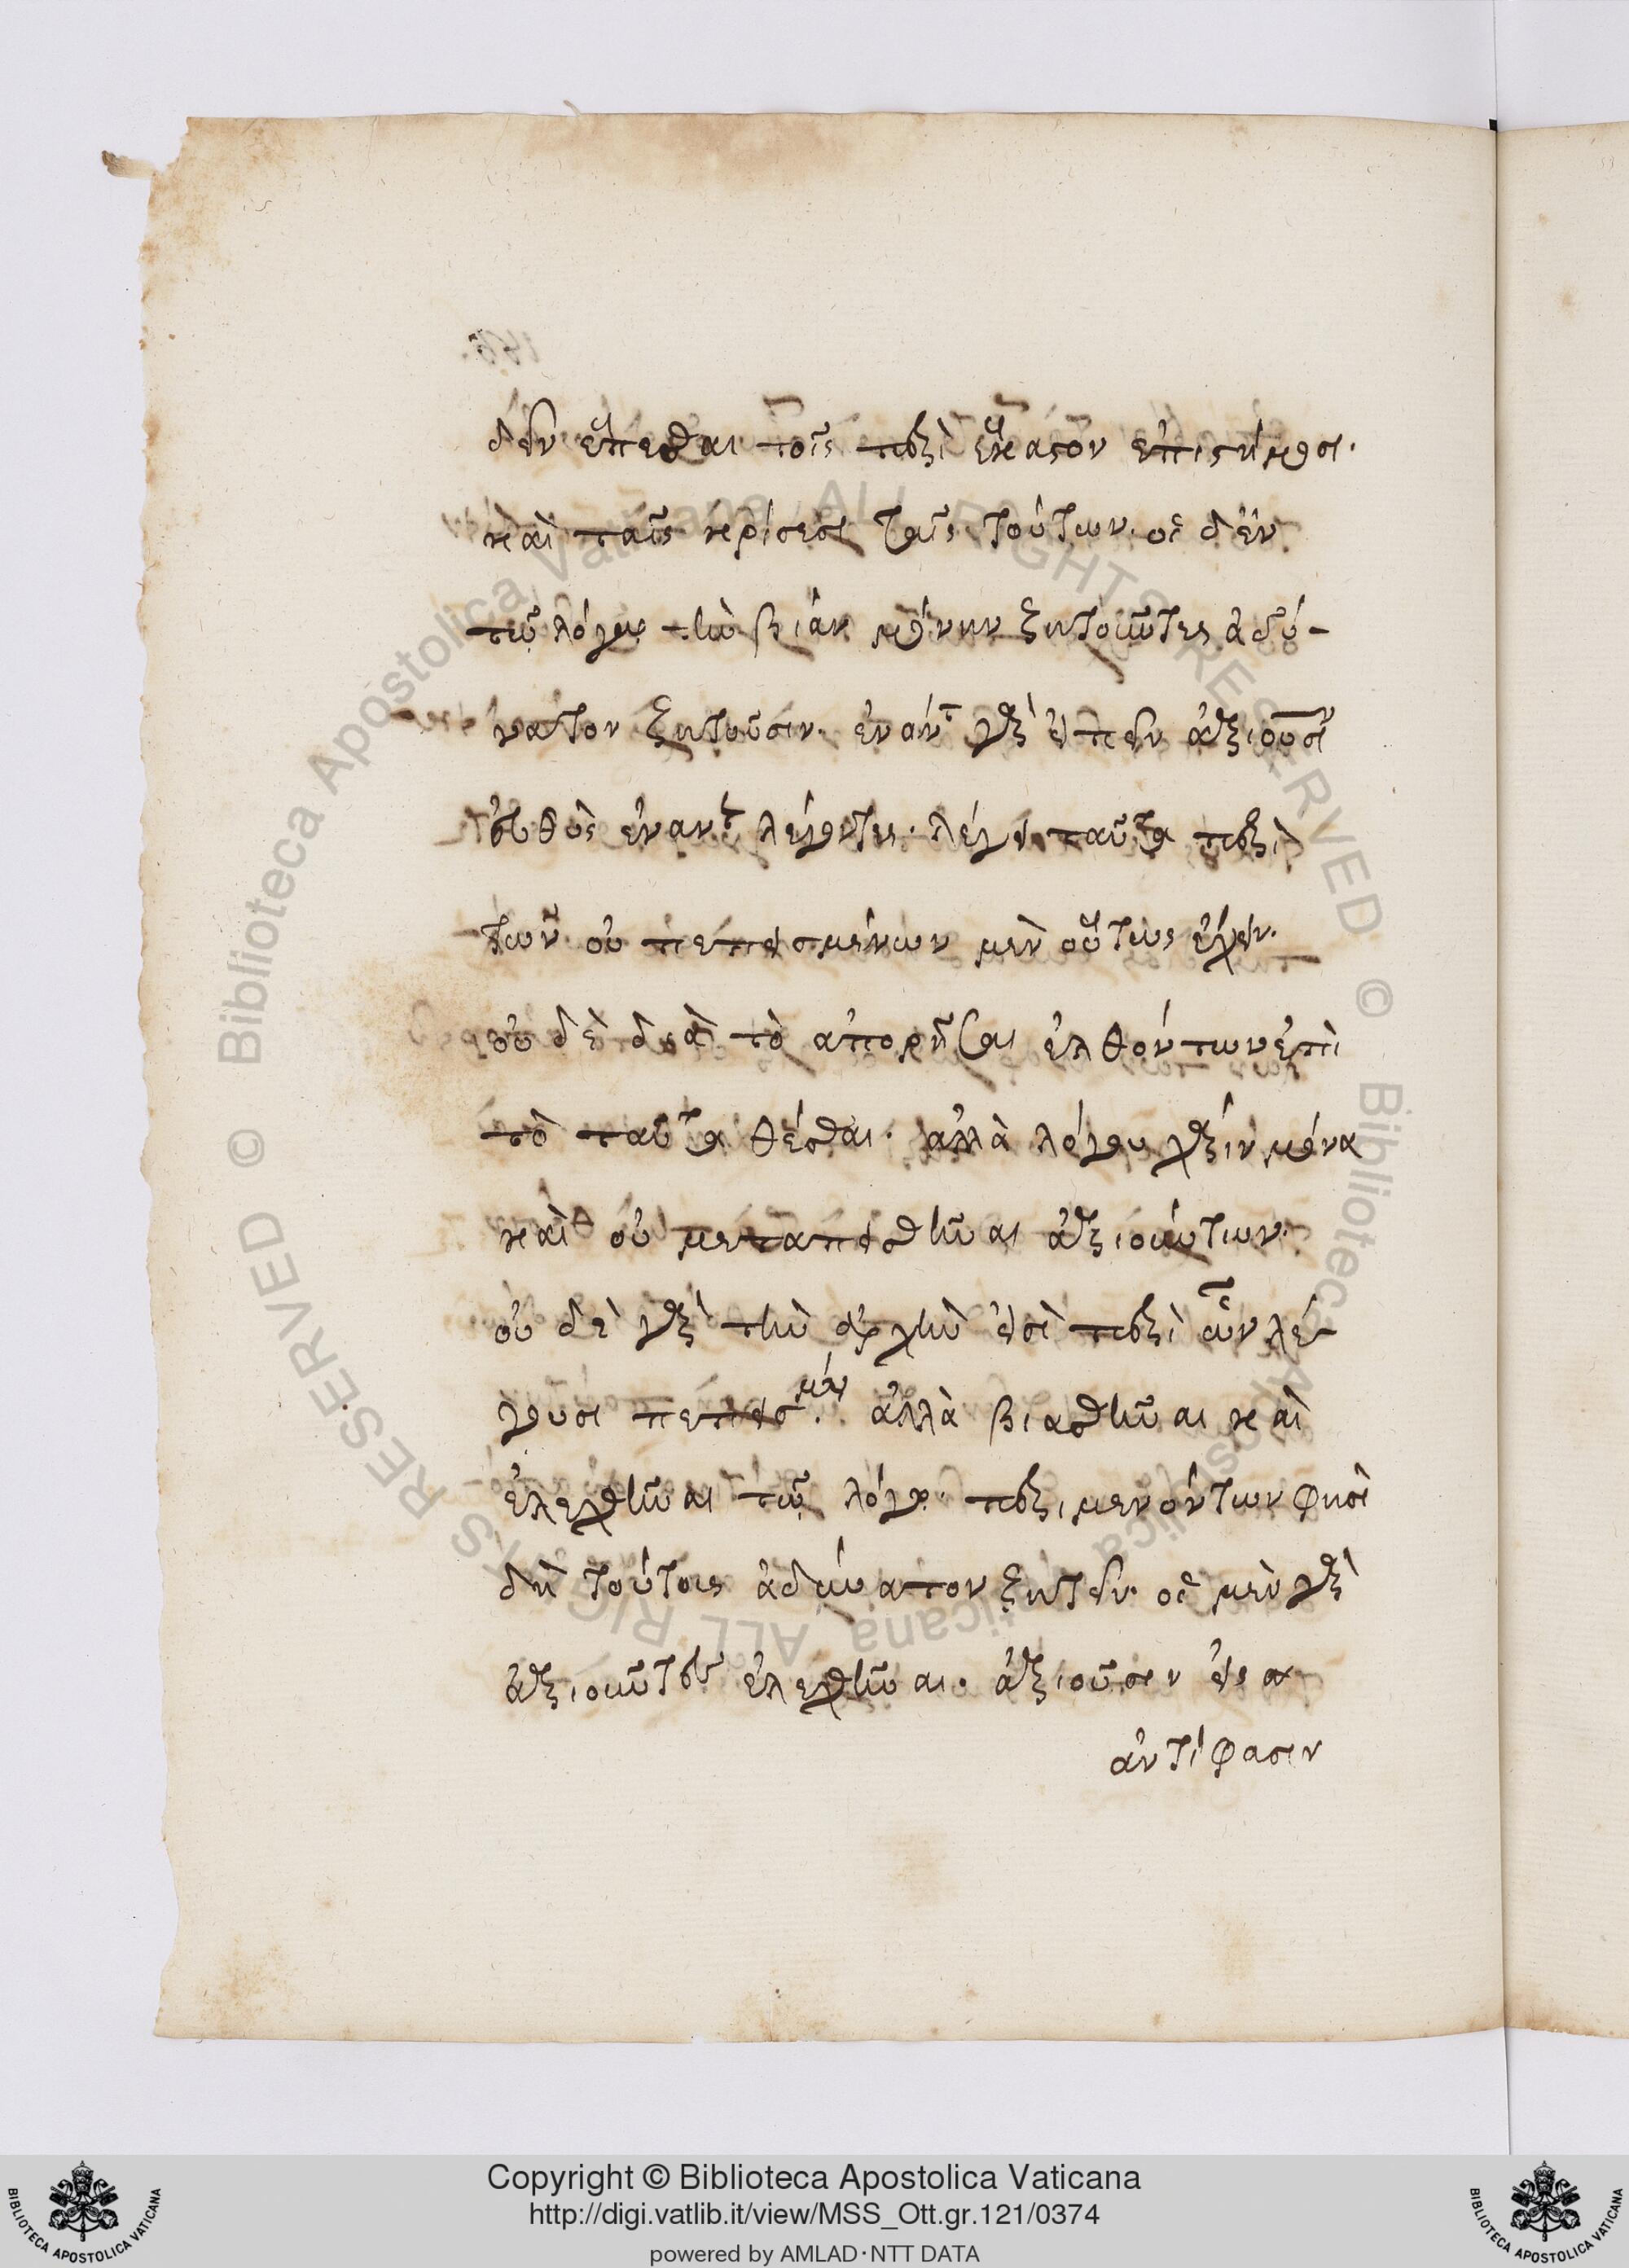 δεῖν ἕπεσθαι τοῖς περὶ ἕκαστον ἐπιστήμοσι.
καὶ ταῖς κρίσεσι ταῖς τούτων. οἱ δ' ἐν
τῷ λόγῳ τὴν βίαν μόνην ζητοῦντες ἀδύ-
νατον ζητοῦσιν. ἐναντ γὰρ εἰπεῖν ἀξιοῦσιν
εὐθὺς ἐναντ λέγοντες. λέγει ταῦτα περὶ
τῶν οὐ πεπεισμένων μὲν οὕτως ἔχειν.
οὐ δὲ διὰ τὸ ἀπορῆσαι ἐλθόντων ἐπὶ
τὸ ταῦτα θέσθαι. ἀλλὰ λόγου χάριν μόνα
καὶ οὐ μεταπεισθῆναι ἀξιούντων.
οὐ δὲ γὰρ τὴν ἀρχὴν εἰσὶ περὶ ὧν λέ-
γουσι πεπεισμέν. ἀλλὰ βιασθῆναι καὶ
ἐλεγχθῆναι τῷ λόγῳ. περὶ μὲν ὄντων φησὶ
δὴ τούτοις ἀδύνατον ζητεῖν. οἱ μὲν γὰρ
ἀξιοῦντες ἐλεγχθῆναι. ἀξιοῦσιν εἰς α
ἀντίφασιν
Copyright © Biblioteca Apostolica Vaticana
http://digi.vatlib.it/view/MSS_Ott.gr.121/0374
powered by AMLAD·NTT DATA
BIBLIOTECA APOSTOLICA VATICANA
BIBLIOTECA APOSTOLICA VATICANA
© Biblioteca Apostolica Vaticana ALL RIGHTS RESERVED
© Biblioteca Apostolica Vaticana ALL RIGHTS RESERVED